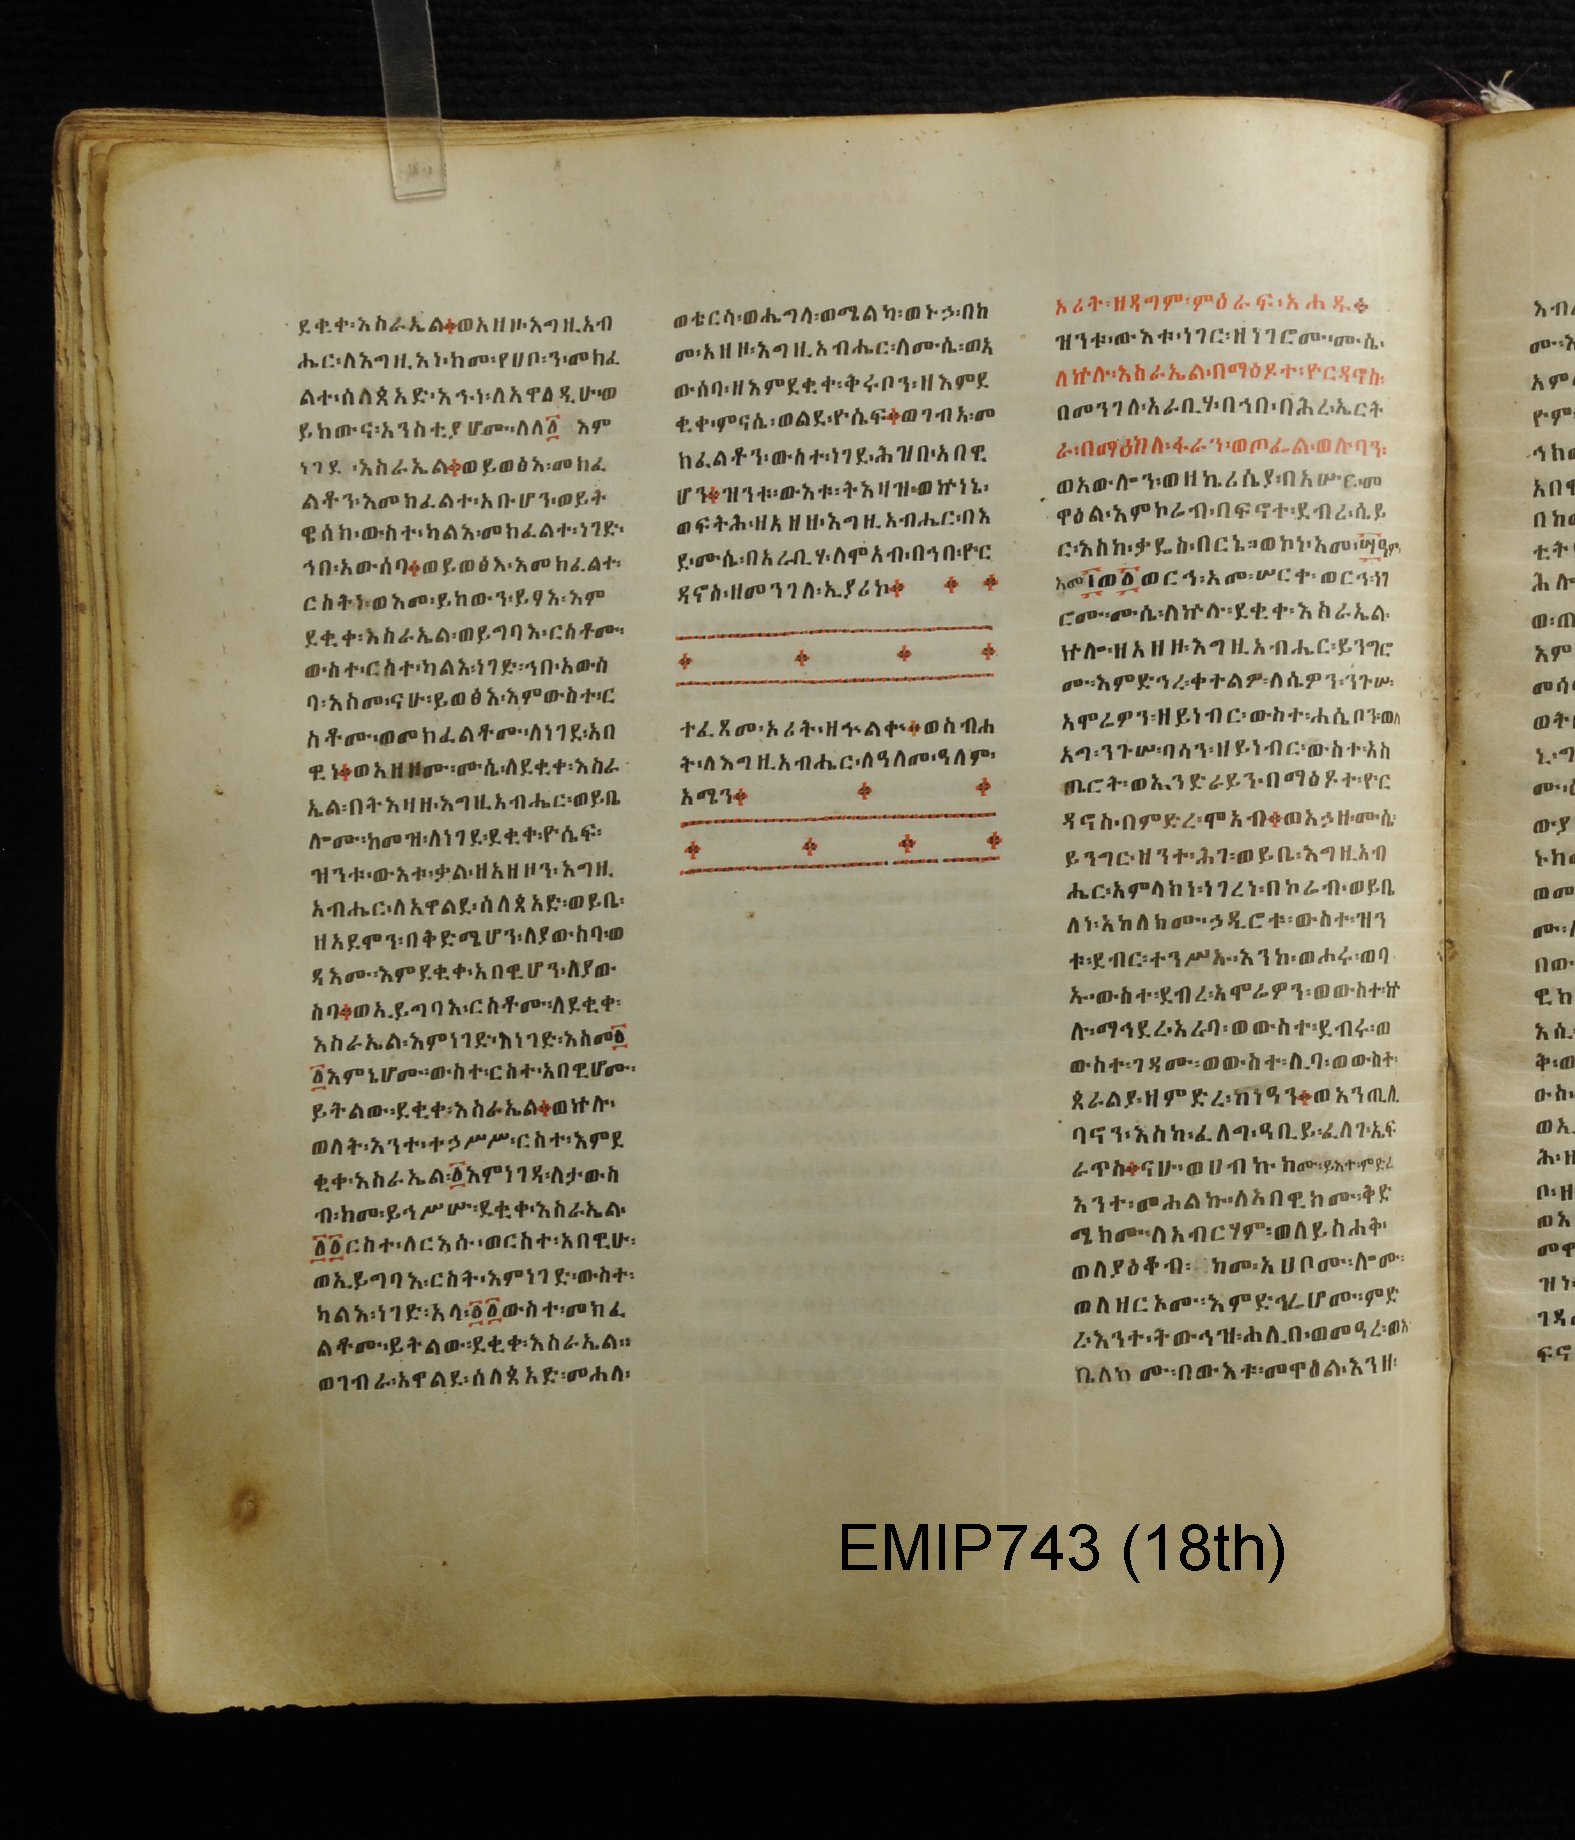 ደቂቀ፡እስራኤል፨ወአዘዞ፡እግዚአብ
ሔር፡ለእግዚእነ፡ከመ፡የሀቦ፡ን፡መክፈ
ልተ፡ሰለጰአድ፡እኅነ፡ለአዋልዲሁ፡ወ
ይከውና፡አንስቲያሆሙ፡ለለ፩ እም
ነገደ ፡እስራኤል፨ወይወፅእ፡መክፈ
ልቶን፡እመክፈልተ፡አቡሆን፡ወይት
ዌሰክ፡ውስተ፡ካልእ፡መክፈልተ፡ነገድ፡
ኀበ፡አውሰባ፨ወይወፅእ፡እመክፈልተ፡
ርስትነ፡ወእመ፡ይከውን፡ይፃእ፡እም
ደቂቀ፡እስራኤል፡ወይግባእ፡ርስቶሙ፡
ውስተ፡ርስተ፡ካልእ፡ነገድ፡ኀበ፡አውስ
ባ፡እስመ፡ናሁ፡ይወፅእ፡እምውስተ፡ር
ስቶሙ፡ወመክፈልቶሙ፡ለነገደ፡አበ
ዊነ፨ወአዘዘሙ፡ሙሴ፡ለደቂቀ፡እስራ
ኤል፡በትእዛዘ፡እግዚአብሔር፡ወይቤ
ሎሙ፡ከመዝ፡ለነገደ፡ደቂቀ፡ዮሴፍ፡
ዝንቱ፡ውእቱ፡ቃል፡ዘአዘዞን፡እግዚ
አብሔር፡ለአዋልደ፡ሰለጰአድ፡ወይቤ፡
ዘአደሞን፡በቅድሜሆን፡ለያውስባ፡ወ
ዳእሙ፡እምደቂቀ፡አበዊሆን፡ለያው
ስባ፨ወኢይግባእ፡ርስቶሙ፡ለደቂቀ፡
እስራኤል፡እምነገድ፡ለነገድ፡እስመ፩
፩እምኔሆሙ፡ውስተ፡ርስተ፡አበዊሆሙ፡
ይትልው፡ደቂቀ፡እስራኤል፨ወኵሉ፡
ወለት፡እንተ፡ተኃሥሥ፡ርስተ፡እምደ
ቂቀ፡እስራኤል፡፩እምነገዳ፡ለታውስ
ብ፡ከመ፡ይኅሥሡ፡ደቂቀ፡እስራኤል፡
፩፩ርስተ፡ለርእሱ፡ወርስተ፡አበዊሁ፡
ወኢይግባእ፡ርስት፡እምነገድ፡ውስተ፡
ካልእ፡ነገድ፡አላ፡፩፩ውስተ፡መክፈ
ልቶሙ፡ይትልው፡ደቂቀ፡እስራኤል፡፡
ወገብራ፡አዋልደ፡ሰለጰአድ፡መሐላ፡
ወቴርሳ፡ወሔግላ፡ወሜልካ፡ወኑኃ፡በከ
መ፡አዘዞ፡እግዚአብሔር፡ለሙሴ፡ወአ
ውሰባ፡ዘእምደቂቀ፡ቅሩቦን፡ዘእምደ
ቂቀ፡ምናሴ፡ወልደ፡ዮሴፍ፨ወገብአ፡መ
ክፈልቶን፡ውስተ፡ነገደ፡ሕዝበ፡አበዊ
ሆን፨ዝንቱ፡ውእቱ፡ትእዛዝ፡ወኵነኔ፡
ወፍትሕ፡ዘአዘዘ፡እግዚአብሔር፡በእ
ደ፡ሙሴ፡በአራቢሃ፡ለሞአብ፡በኀበ፡ዮር
ዳኖስ፡ዘመንገለ፡ኢያሪኮ፨ ፨ ፨
፨ ፨ ፨ ፨
ተፈጸመ፡ኦሪት፡ዘኍልቍ፡፨ወስብሐ
ት፡ለእግዚአብሔር፡ለዓለመ፡ዓለም፡
አሜን፨ ፨ ፨
፨ ፨ ፨ ፨
ኦሪት፡ዘዳግም፡ምዕራፍ፡አሐዱ፨
ዝንቱ፡ውእቱ፡ነገር፡ዘነገሮሙ፡ሙሴ፡
ለኵሉ፡እስራኤል፡በማዕዶተ፡ዮርዳኖስ፡
በመንገለ፡አራቢሃ፡በኀበ፡በሕረ፡ኤርት
ራ፡በማዕከለ፡ፋራን፡ወጦፌል፡ወሉባን፡
ወአውሎን፡ወዘኬሪሴያ፡በአሡር፡መ
ዋዕል፡እምኮሬብ፡በፍኖተ፡ደብረ፡ሴይ
ር፡እስከ፡ቃዴስ፡በርኔ፡፡ወኮነ፡አመ፡
አመ፡፲ወ፩ወርኅ፡አመ፡ሠርቀ፡ወርኅ፡ነገ
ሮሙ፡ሙሴ፡ለኵሉ፡ደቂቀ፡እስራኤል፡
ኵሎ፡ዘአዘዞ፡እግዚአብሔር፡ይንግሮ
ሙ፡እምድኅረ፡ቀተልዎ፡ለሴዎን፡ንጉሠ፡
አሞሬዎን፡ዘይነብር፡ውስተ፡ሐሴቦን፡ወለ
አግ፡ንጉሠ፡ባሳን፡ዘይነብር፡ውስተ፡አስ
ጤሮት፡ወኤንድራይን፡በማዕዶተ፡ዮር
ዳኖስ፡በምድረ፡ሞአብ፨ወአኃዘ፡ሙሴ፡
ይንግር፡ዘንተ፡ሕገ፡ወይቤ፡እግዚአብ
ሔር፡አምላክነ፡ነገረነ፡በኮሬብ፡ወይቤ
ለነ፡አከለክሙ፡ኃዲሮቱ፡ውስተ፡ዝን
ቱ፡ደብር፡ተንሥኡ፡እንከ፡ወሖሩ፡ወባ
ኡ፡ውስተ፡ደብረ፡አሞሬዎን፡ወውስተ፡ኵ
ሉ፡ማኅደረ፡አራባ፡ወውስተ፡ደብሩ፡ወ
ውስተ፡ገዳሙ፡ወውስተ፡ሊባ፡ወውስተ፡
ጰራልያ፡ዘምድረ፡ከነዓን፨ወአንጢሊ
ባኖን፡እስከ፡ፈለግ፡ዓቢይ፡ፈለገ፡ኤፍ
ራጥስ፨ናሁ፡ወሀብኩክሙ፡ይእተ፡ምድረ
እንተ፡መሐልኩ፡ለአበዊክሙ፡ቅድ
ሜክሙ፡ለአብርሃም፡ወለይስሐቅ፡
ወለያዕቆብ፡ ከመ፡አሀቦሙ፡ሎሙ፡
ወለዘርኦሙ፡እምድኅሬሆሙ፡ምድ
ረ፡እንተ፡ትውኅዝ፡ሐሊበ፡ወመዓረ፡ወእ
ቤለክሙ፡በውእቱ፡መዋዕል፡እንዘ፡
EMIP743 (18th)